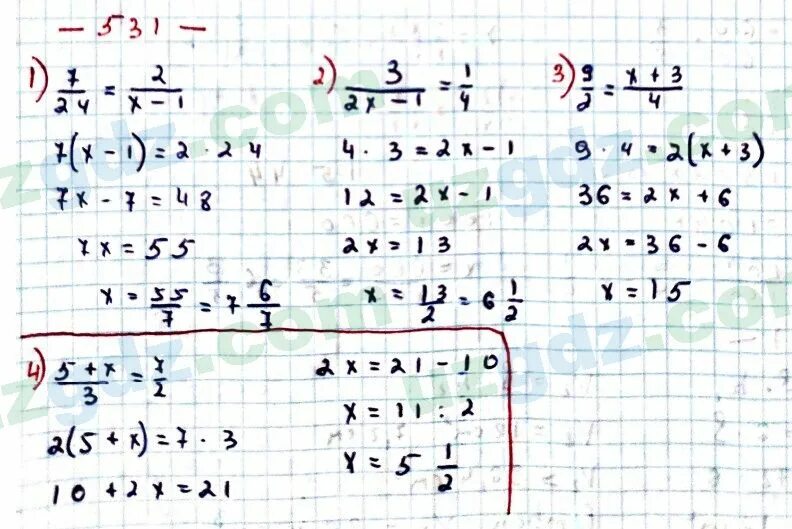 — 531 —
1) 7/24 = 2/(x – 1)
7(x – 1) = 2 · 24
7x – 7 = 48
7x = 55
x = 55/7 = 7 6/7
2) 3/(2x – 1) = 1/4
4 · 3 = 2x – 1
12 = 2x – 1
2x = 13
x = 13/2 = 6 1/2
3) 9/2 = (x + 3)/4
9 · 4 = 2(x + 3)
36 = 2x + 6
2x = 36 – 6
x = 15
4) (5 + x)/3 = 7/2
2(5 + x) = 7 · 3
10 + 2x = 21
2x = 21 – 10
x = 11 : 2
x = 5 1/2
uzgdz.com